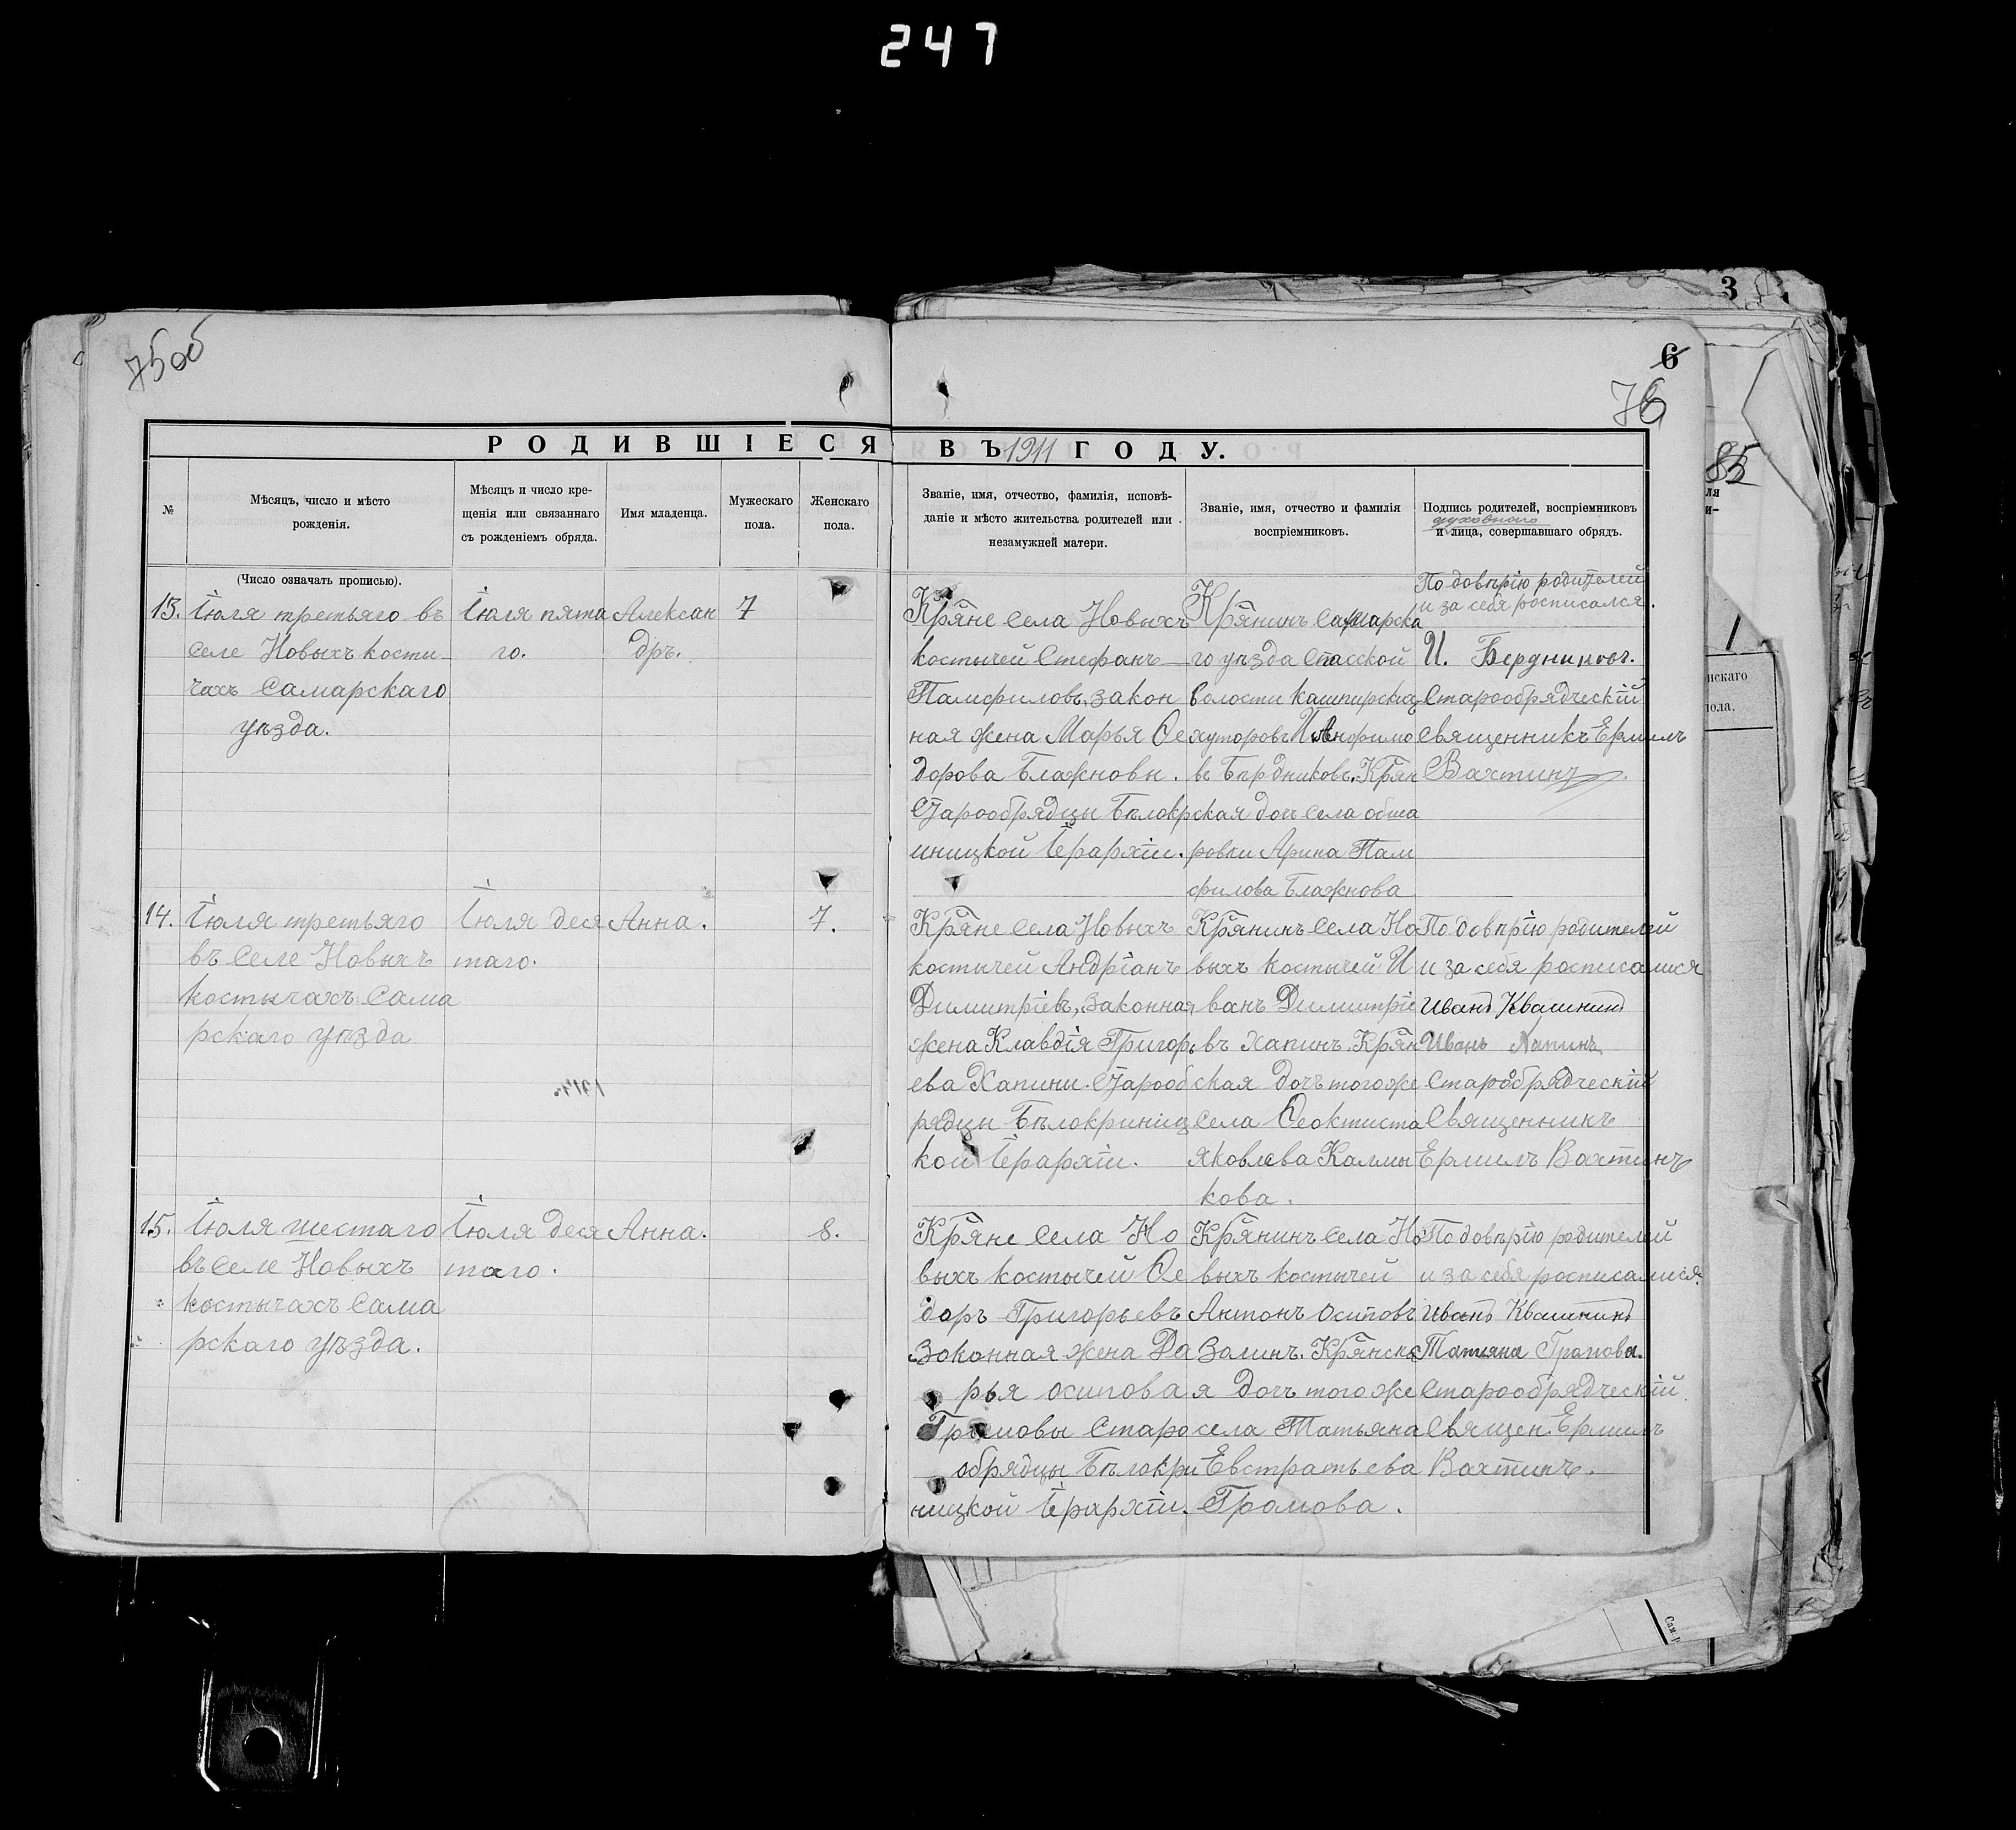 247
75об
3
6
76
85
РОДИВШІЕСЯ ВЪ 1911 ГОДУ.
№
Мѣсяцъ, число и мѣсто
рожденія.
(Число означать прописью).
Мѣсяцъ и число кре-
щенія или связаннаго
съ рожденіемъ обряда.
Имя младенца.
Мужескаго
пола.
Женскаго
пола.
Званіе, имя, отчество, фамилія, исповѣ-
даніе и мѣсто жительства родителей или
незамужней матери.
Званіе, имя, отчество и фамилія
воспріемниковъ.
Подпись родителей, воспріемниковъ
духовнаго
и лица, совершавшаго обрядъ.
13.
Іюля третьяго въ
селе Новыхъ кости-
чахъ Самарскаго
уѣзда.
Іюля пята
го.
Алексан
дръ.
7
Кряне села Новыхъ
костычей Стефанъ
Памфиловъ, закон
ная жена Марья Ѳе
дорова Блажновы.
Старообрядцы Бѣлокр
иницкой Іерархіи.
Крянинъ Самарска
го уѣзда Спасской
волости кашпирских
хуторовъ И. Анфимо
въ Бердниковъ. Крян
ская дочь села обша
ровки Арина Пам
филова Блажнова
По довѣрію родителей
и за себя росписался.
И. Бердниковъ.
Старообрядческій
священникъ Ермилъ
Вахтинъ.
14.
Іюля третьяго
въ селе Новыхъ
костычахъ Сама
рскаго уѣзда
Іюля деся
таго.
Анна.
7.
Кряне села Новыхъ
костычей Андріанъ
Димитріевъ, законная
жена Клавдія Григорь
ева Хапины. Старооб
рядцы Бѣлокриниц
кой Іерархіи.
Крянинъ села Но
выхъ костычей И
ванъ Димитріе
въ Хапинъ. Крян
ская дочь тогоже
села Ѳеоктиста
Яковлева Калмы
кова.
По довѣрію родителей
и за себя росписалися
Иванъ Квашнинъ
Иванъ Хапинъ
Старообрядческій
Священникъ
Ермилъ Вахтинъ
15.
Іюля шестаго
въ селе Новыхъ
костычахъ Сама
рскаго уѣзда.
Іюля деся
таго.
Анна.
8.
Кряне села Но
выхъ костычей Ѳе
доръ Григорьевъ
Законная жена Да
рья осипова
Громовы Старо
обрядцы Бѣлокри
ницкой Іерархіи.
Крянинъ села Но
выхъ костычей
Антонъ осиповъ
Залинъ. Крянска
я дочь тогоже
села Татьяна
Евстратьева
Громова.
По довѣрію родителей
и за себя росписалися
Иванъ Квашнинъ
Татьяна Громова.
Старообрядческій
Священ. Ермилъ
Вахтинъ.
нскаго
пола.